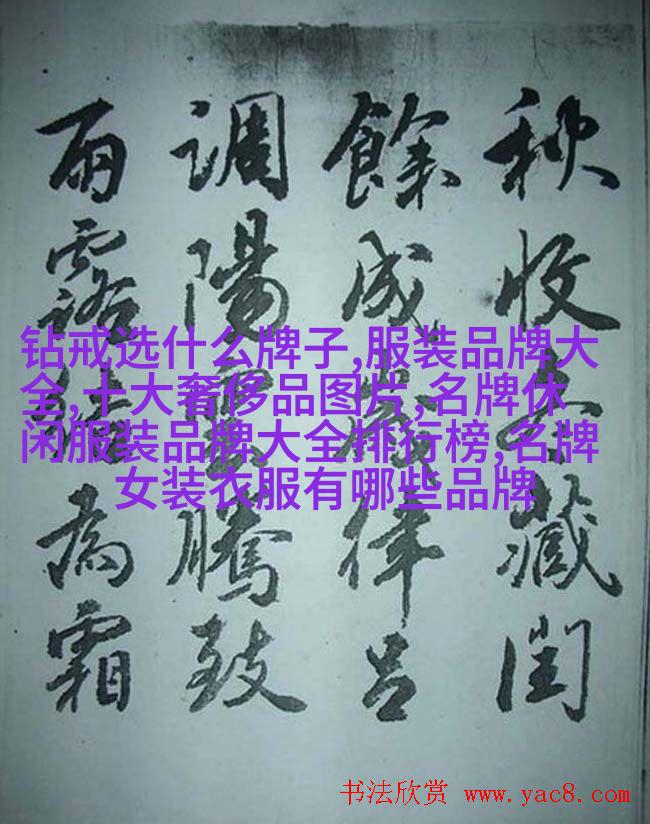 秋收冬藏閏
餘成歲律呂
調陽雲騰致
雨露結為霜
钻戒选什么牌子,服装品牌大
全,十大奢侈品图片,名牌休
闲服装品牌大全排行榜,名牌
女装衣服有哪些品牌
书法欣赏 www.yac8.com